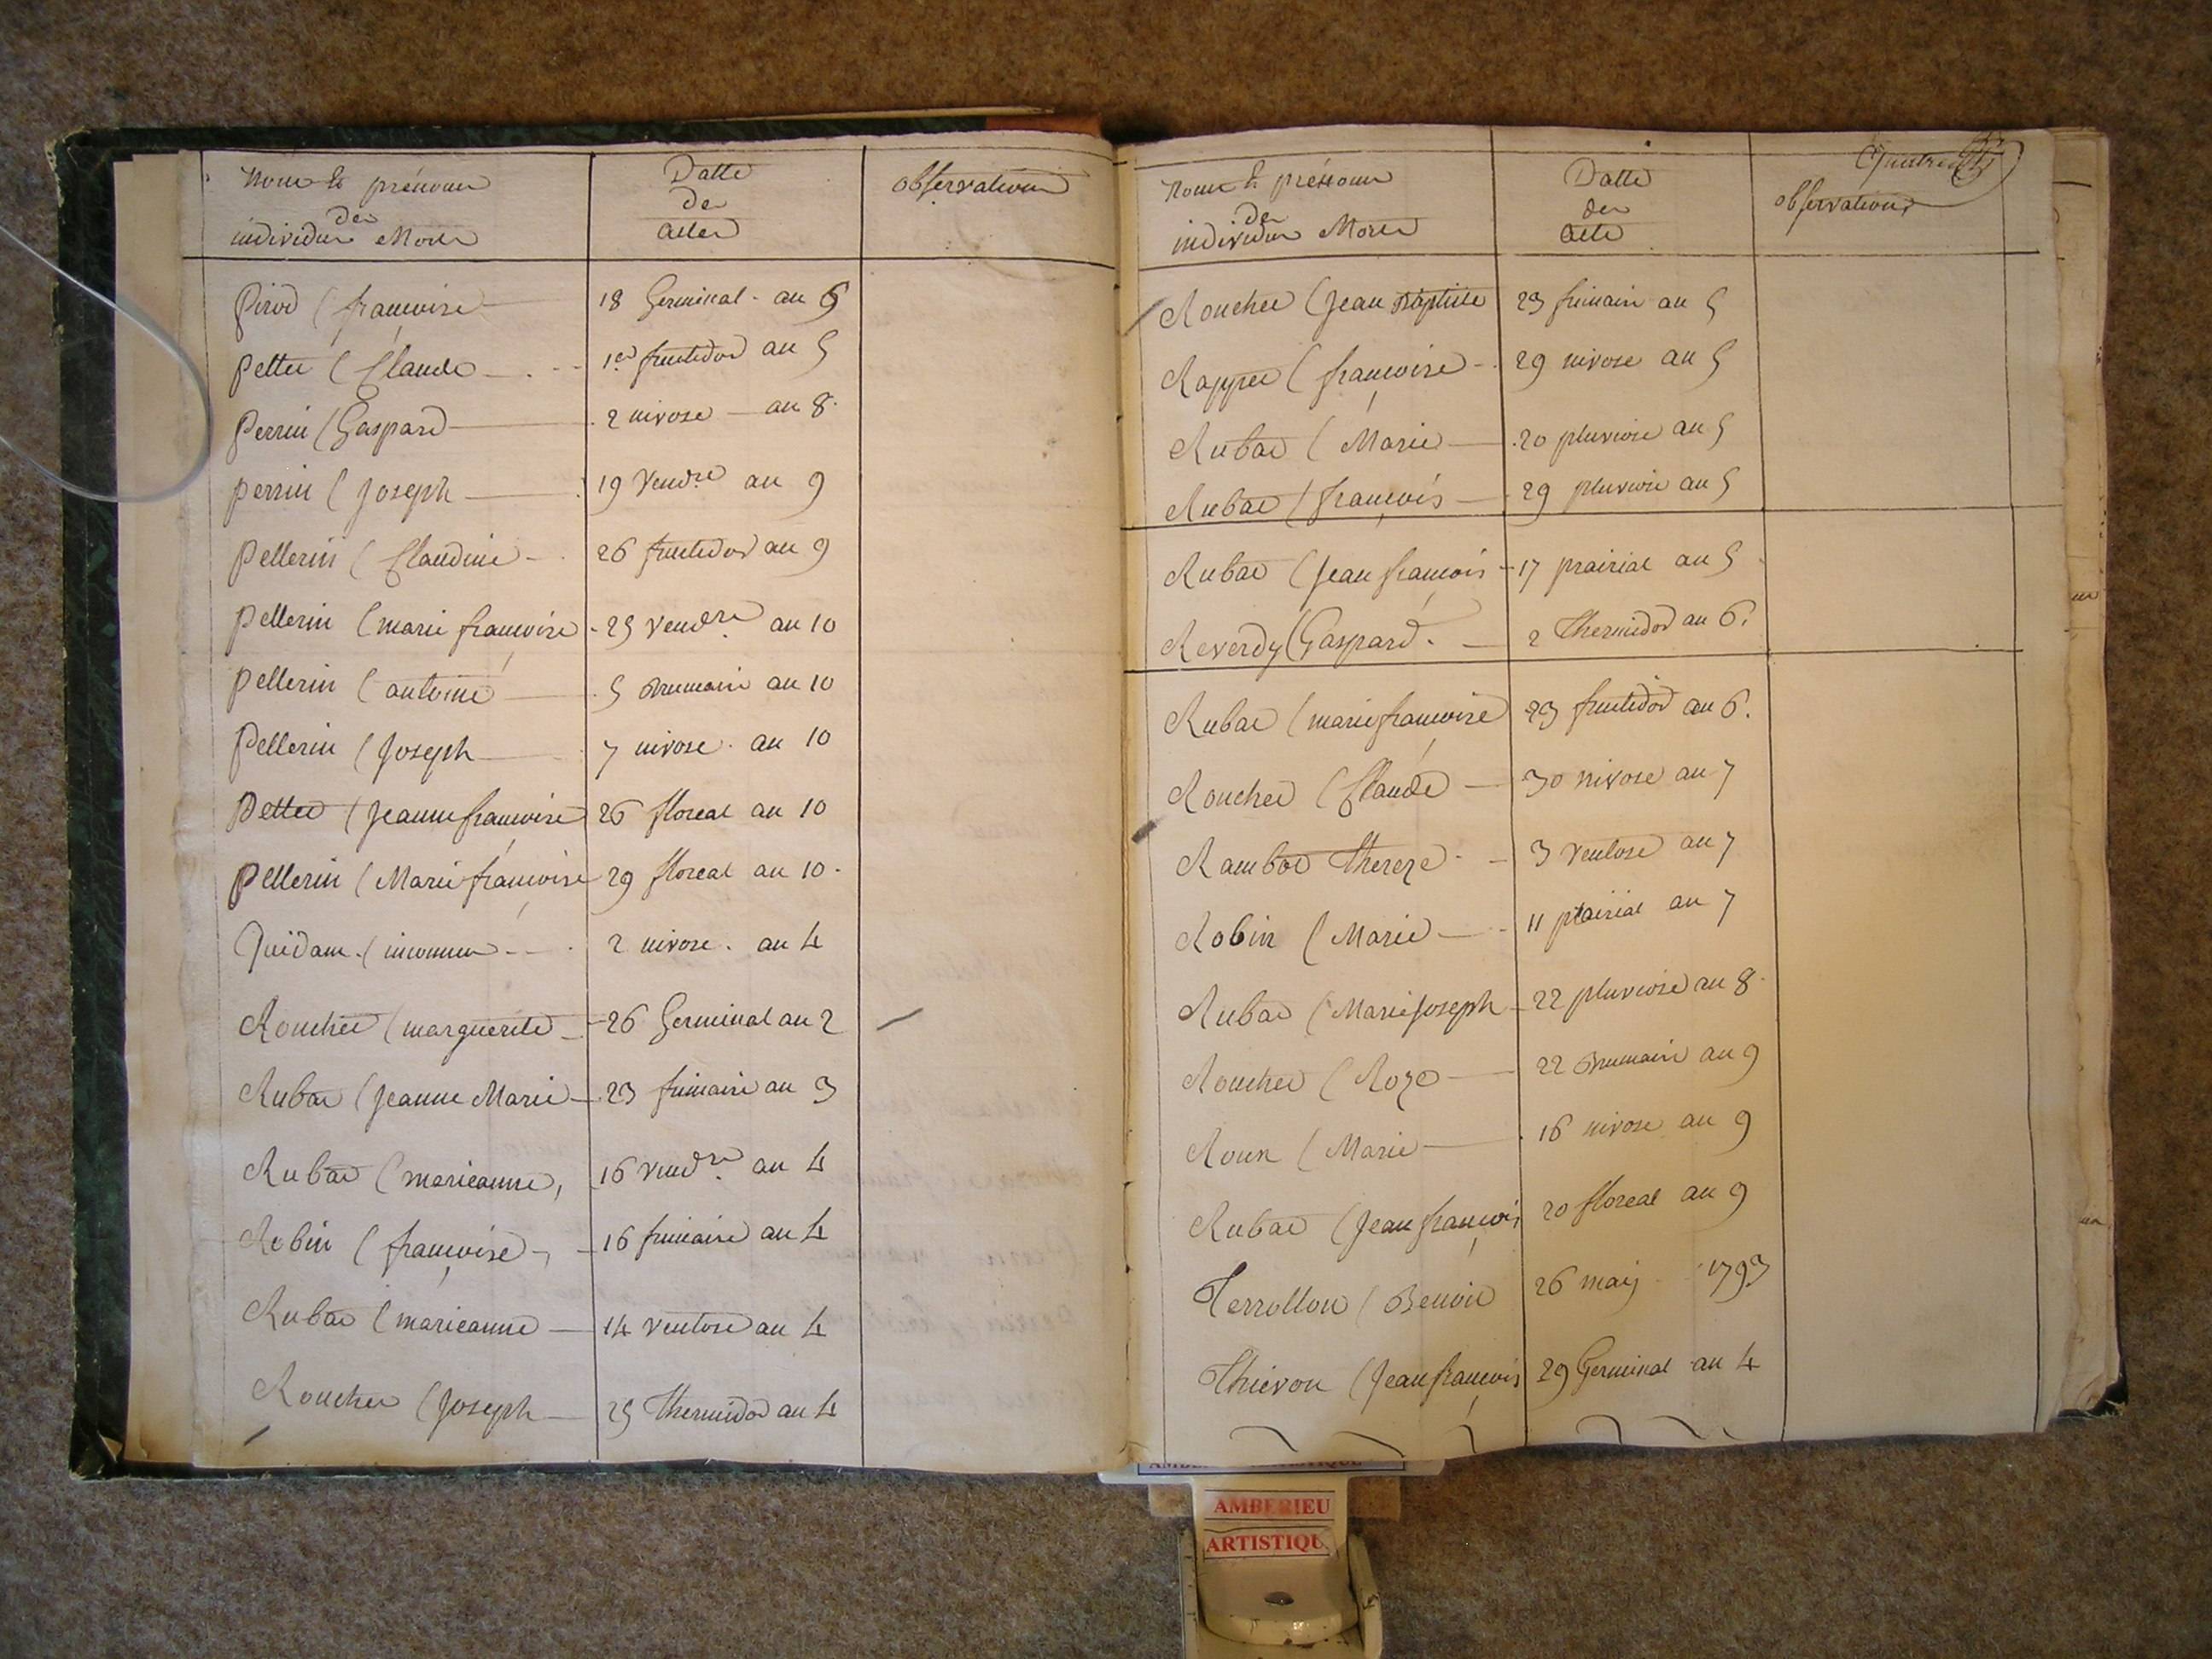 Noms et prénoms
des
individus Morts
Datte
des
actes
observations
Pirod (françoise 18 Germinal an 5
Pettet (Claude 1er fructidor an 5
Perrin (Gaspard 2 nivose an 8
perrin (Joseph 19 Vendre an 9
Pellerin (Claudine 26 fructidor an 9
Pellerin (marie françoise 25 vendre an 10
pellerin (antoine 5 Brumaire an 10
Pellerin (Joseph 7 nivose an 10
Pettet (Jeanne françoise 26 floreal an 10
Pellerin (Marie françoise 29 floreal an 10
Quidam (inconnu 2 nivose an 4
Rouchet (marguerite 26 Germinal an 2
Rubat (Jeanne Marie 23 frimaire an 3
Rubat (marieanne, 16 vendre an 4
Robin (françoise 16 frimaire an 4
Rubat (marieanne 14 ventose an 4
Rouchet (Joseph 25 Thermidor an 4
Noms et prénoms
des
individus Morts
Datte
des
acte
observations
Rouchet (Jean Baptiste 23 frimaire an 5
Rappet (françoise 29 nivose an 5
Rubat (Marie 20 pluviose an 5
Rubat (françois 29 pluviose an 5
Rubat (Jean françois 17 prairial an 5
Reverdy (Gaspard 2 Thermidor an 6
Rubat (marie françoise 23 fructidor an 6
Rouchet (Claude 30 nivose an 7
Rambot Thereze 3 ventose an 7
Robin (Marie 11 prairial an 7
Rubat (Marie Joseph 22 pluviose an 8
Rouchet (Roze 22 Brumaire an 9
Roux (Marie 16 nivose an 9
Rubat (Jean françois 20 floreal an 9
Terrollon (Benoit 26 may 1793
Thievon (Jean françois 29 Germinal an 4
AMBERIEU
ARTISTIQU